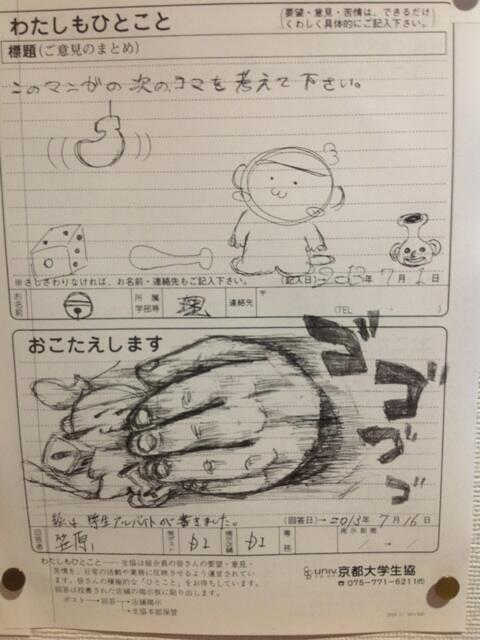 わたしもひとこと
(要望・意見・苦情は、できるだけ
くわしく具体的にご記入下さい。)
標題(ご意見のまとめ)
このマンガの次のコマを考えて下さい。
※さしさわりなければ、お名前・連絡先もご記入下さい。 (記入日)→2013年 7月 1日
お名前
所属学部等 理
連絡先 〒
(TEL )
おこたえします
ゴ
ゴ
ゴ
ゴ
絵は学生アルバイトが書きました。
(回答日)→2013年 7月 16日
回答者 笠原
専務
わたしもひとこと── 生協は組合員の皆さんの要望・意見・
苦情を、日常の活動や業務に反映させるよう運営されてい
ます。皆さんの積極的な「ひとこと」をお待ちしています。
回答は投書された店舗の掲示板に貼り出します。
ポスト→回答→店舗掲示
→生協本部保管
univ. 京都大学生協
☎ 075-771-6211㈹